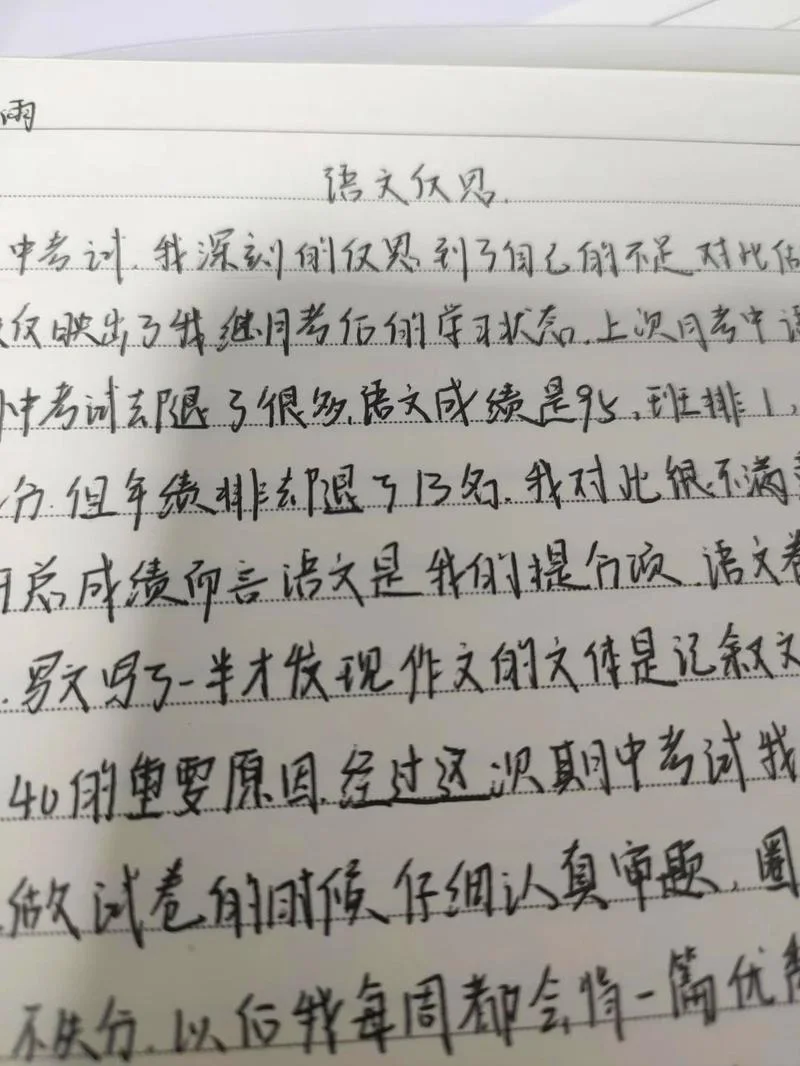 雨
语文反思.
中考试.我深刻的反思到了自己的不足.对比
反映出了我继月考后的学习状态.上次月考中
中考试却退了很多.语文成绩是95,班排1,
分.但年级排却退了13名.我对此很不满
总成绩而言语文是我的提分项.语文卷
.写文写了一半才发现作文的文体是记叙文
40的重要原因.经过这次期中考试我
做试卷的时候仔细认真审题,圈
不失分.以后我每周都会将一篇优